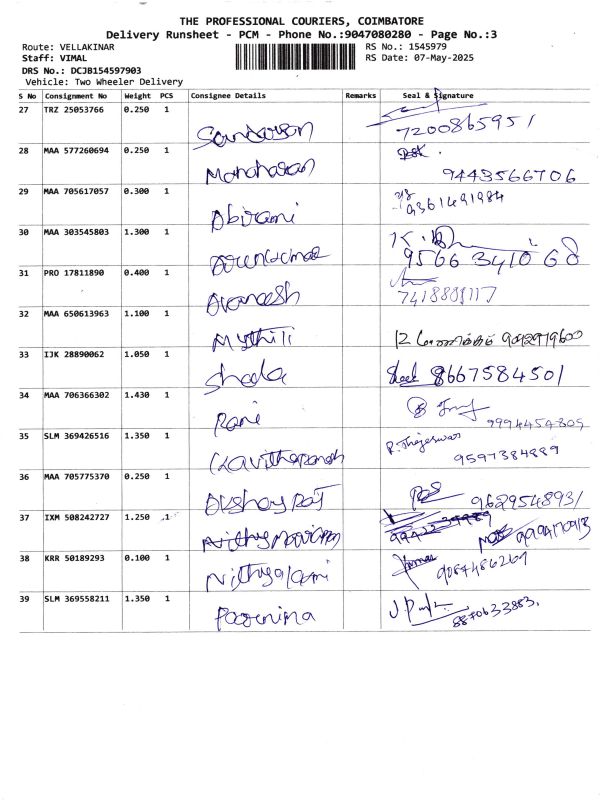 THE PROFESSIONAL COURIERS, COIMBATORE
Delivery Runsheet - PCM - Phone No.:9047080280 - Page No.:3
Route: VELLAKINAR RS No.: 1545979
Staff: VIMAL RS Date: 07-May-2025
DRS No.: DCJB154597903
Vehicle: Two Wheeler Delivery
S No Consignment No Weight PCS Consignee Details Remarks Seal & Signature
27 TRZ 25053766 0.250 1 7200865951
28 MAA 577260694 0.250 1 Manoharan 9443566706
29 MAA 705617057 0.300 1 Abirami 9361491984
30 MAA 303545803 1.300 1 Arunkumar
31 PRO 17811890 0.400 1 Avaneesh
32 MAA 650613963 1.100 1 Mythili
33 IJK 28890062 1.050 1 Sheela 8667584501
34 MAA 706366302 1.430 1 Rani 9994454305
35 SLM 369426516 1.350 1 9597384889
36 MAA 705775370 0.250 1 Akshay Raj 9629548931
37 IXM 508242727 1.250 1
38 KRR 50189293 0.100 1
39 SLM 369558211 1.350 1 Poornima 8870633853.